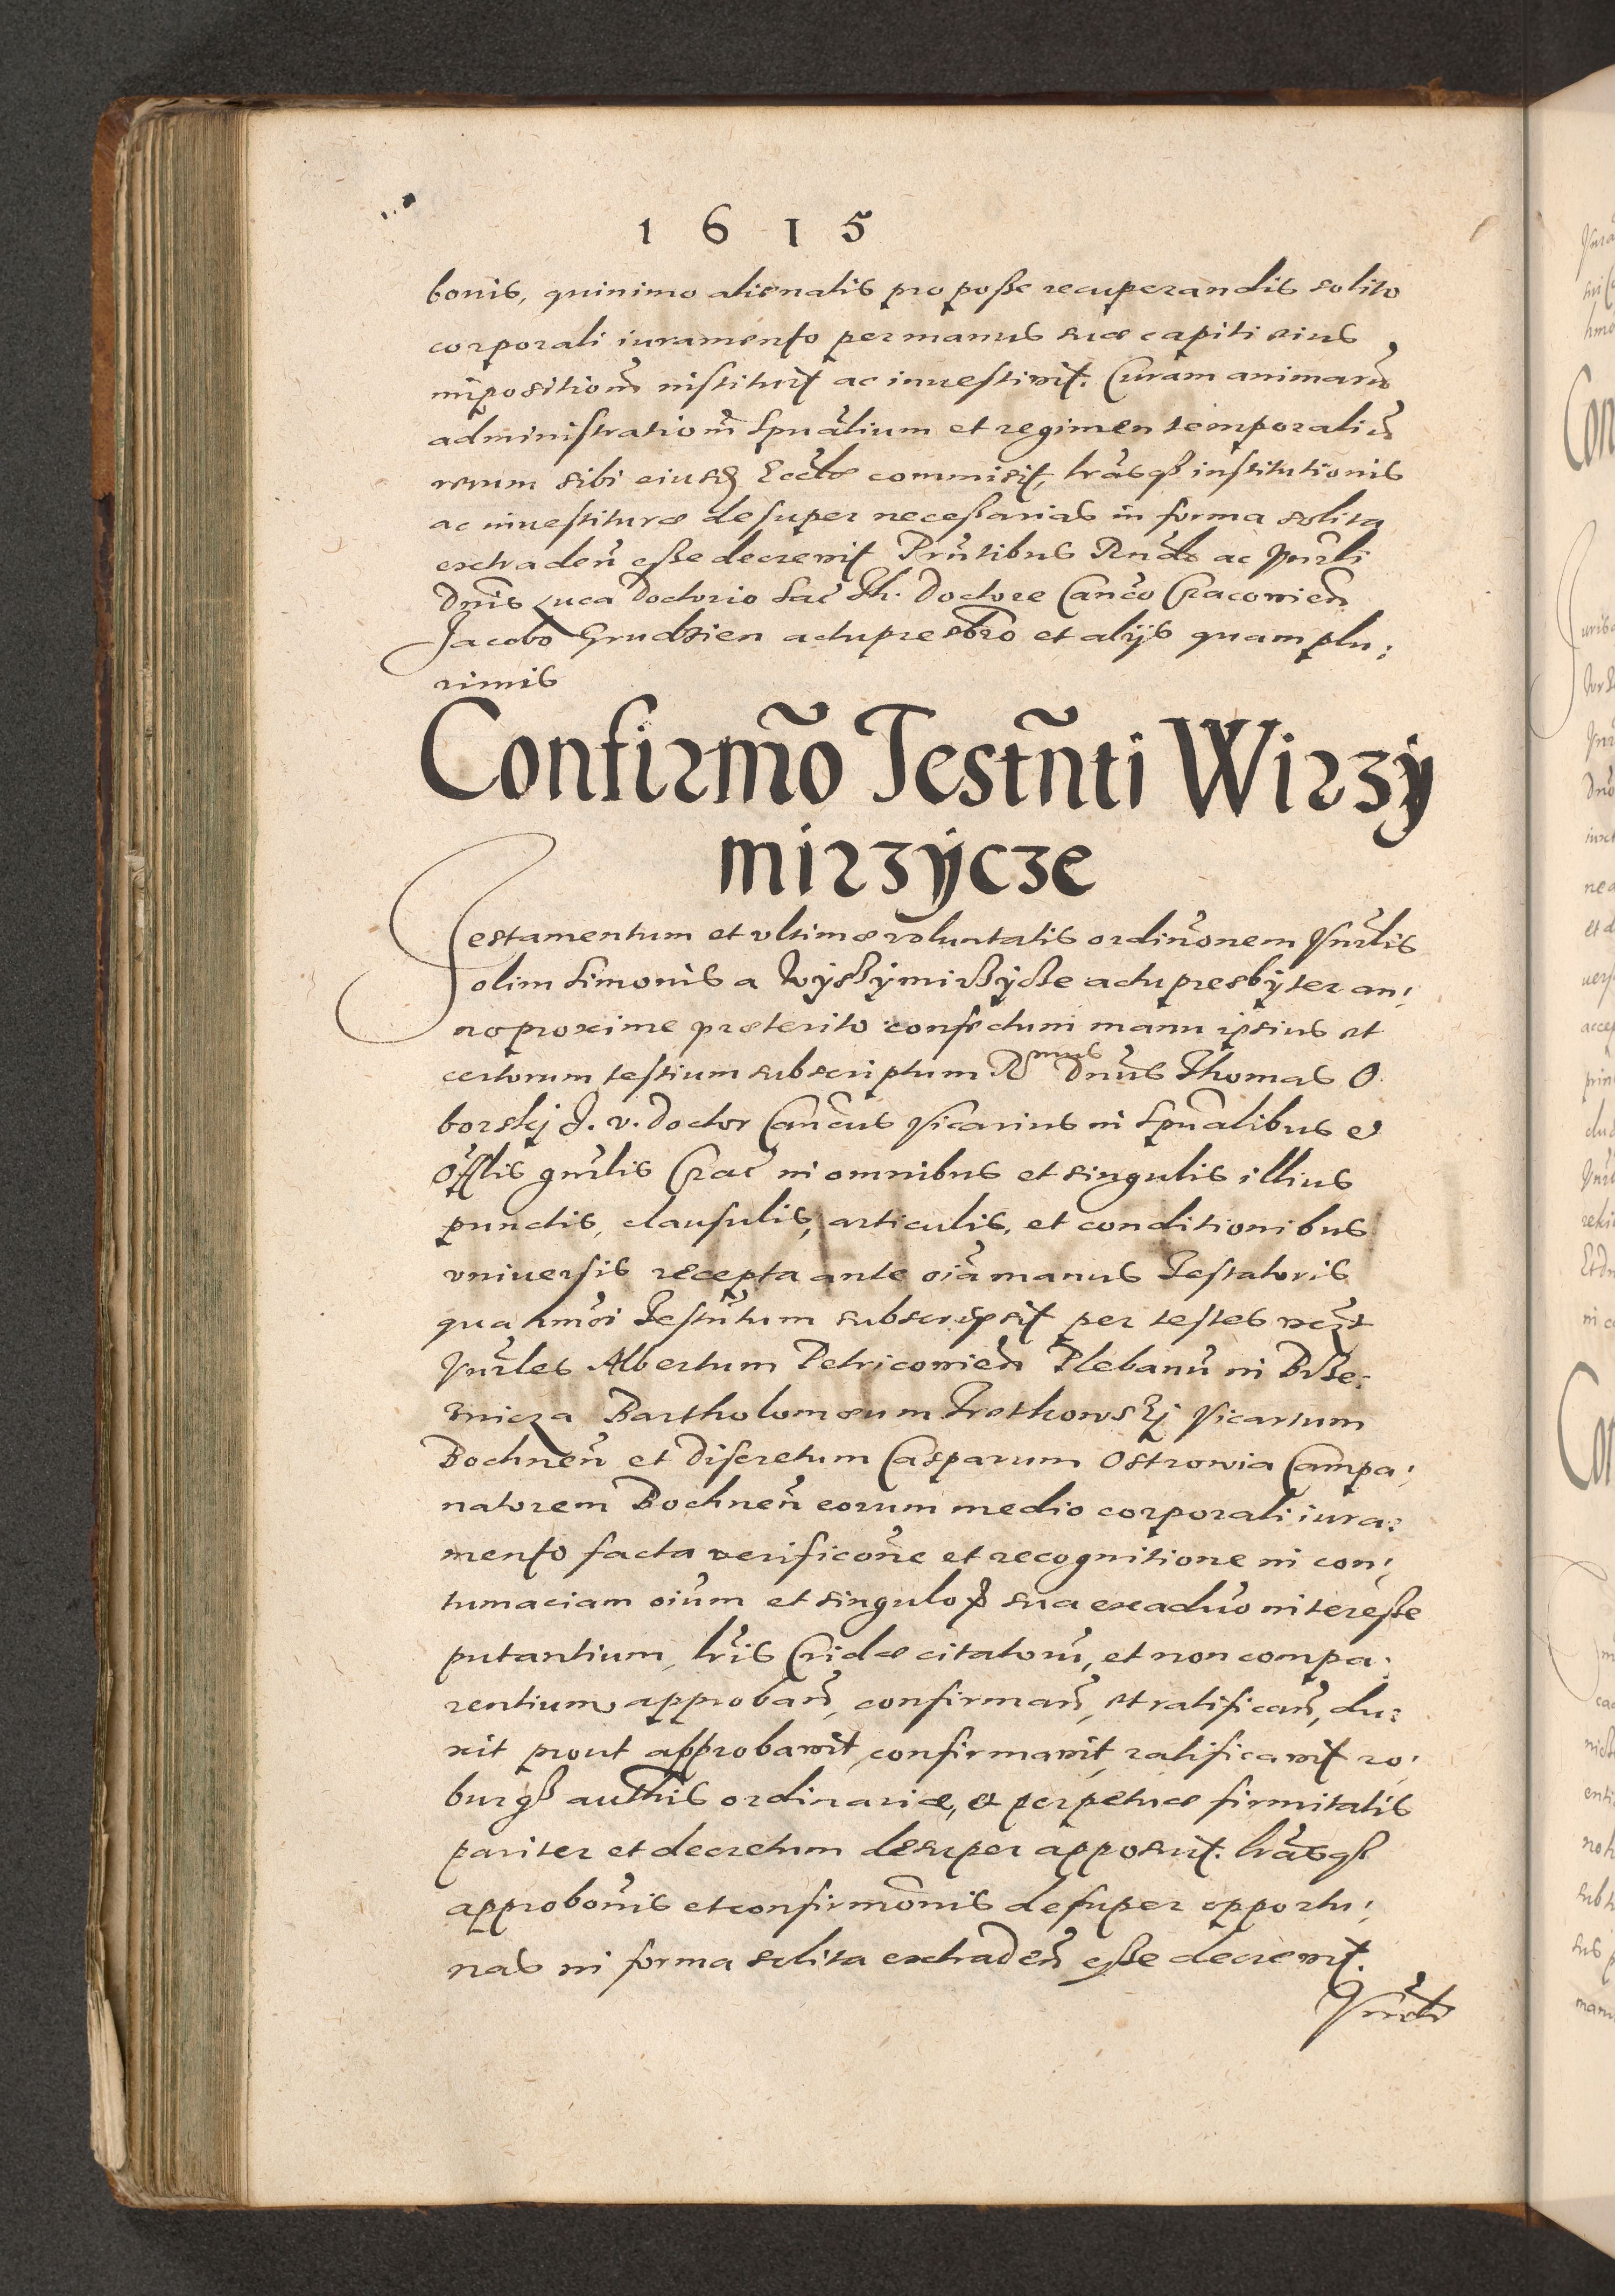 1615
bonis, quinimo alienatis pro posse recuperandis solito
corporali iuramento per manus suæ capiti eius
impositionẽ instituit ac inuestiuit. Curam animarũ
administrationẽ Spũalium et regimen temporaliũ
rerum sibi eiusd Eccłæ commisit, lrãsq institutionis
ac inuestituræ desuper necessarias in forma solita
extraden̄ esse decreuit Pñtibus Rñdo ac Vñrli
Dñis Luca Doctorio Sac Th. Doctore Canco Cracouien̄
Jacobo Grudzien actu presbro et alijs quamplu:
rimis
Confirmõ Testñti Wirzy
mirzycze
Testamentum et vltimæ voluntatis ordinõnem Vñrlis
olim Simonis a Wyszymirzycze actu presbyter an:
no proxime præterito confectum manu ipsius et
certorum testium subscriptum Rmus Dñus Thomas O
borskj J. v. Doctor Cancus Vicarius in Spũalibus et
Offlis gñrlis Crac in omnibus et singulis illius
punctis, clausulis, articulis, et conditionibus
vniuersis recepta ante oĩa manus Testatoris
qua hmõi Testñtum subscripsit per testes nẽpt
Vñrles Albertum Petricouien̄ Plebanũ in Brze:
znicza Bartholomæum Trethowskj Vicarium
Bochnen̄ et Discretum Casparum Ostrowia Campa:
natorem Bochnen̄ eorum medio corporali iura:
mento facta verificõne et recognitione in con:
tumaciam oĩum et singulor sua exaduo interesse
putantium, lrĩs Cridæ citatorũ, et non compa:
rentium approban̄, confirman̄, et ratifican̄, du:
xit prout approbauit, confirmauit, ratificauit ro:
burq authis ordinariæ, et perpetuæ firmitatis
pariter et decretum desuper apposuit. lrãsq
approbõnis et confirmõnis desuper opportu:
nas in forma solita extraden̄ esse decreuit.